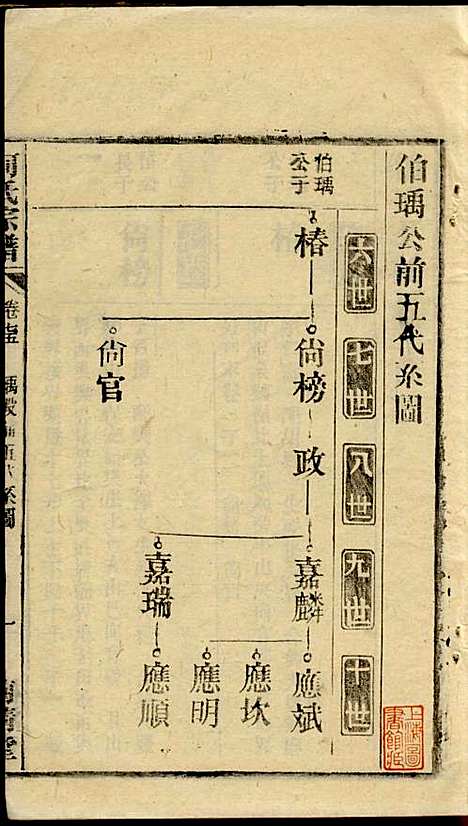 伯瑀公前五代系圖
六世
七世
八世
九世
十世
伯瑀
公子
椿
尙榜
政
嘉麟
應斌
應坎
應明
尙官
嘉瑞
應順
氏宗譜
系圖
上海圖
書館藏